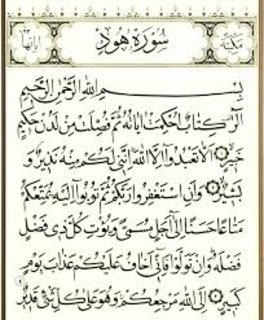 سورة هود
مكية
بسم الله الرحمن الرحيم
الر كتاب احكمت اياته ثم فصلت من لدن حكيم
خبير الا تعبدوا الا الله انني لكم منه نذير و
بشير وان استغفروا ربكم ثم توبوا اليه يمتعكم
متاعا حسنا الى اجل مسمى ويؤت كل ذي فضل
فضله وان تولوا فاني اخاف عليكم عذاب يوم
كبير الى الله مرجعكم وهو على كل شئ قدير